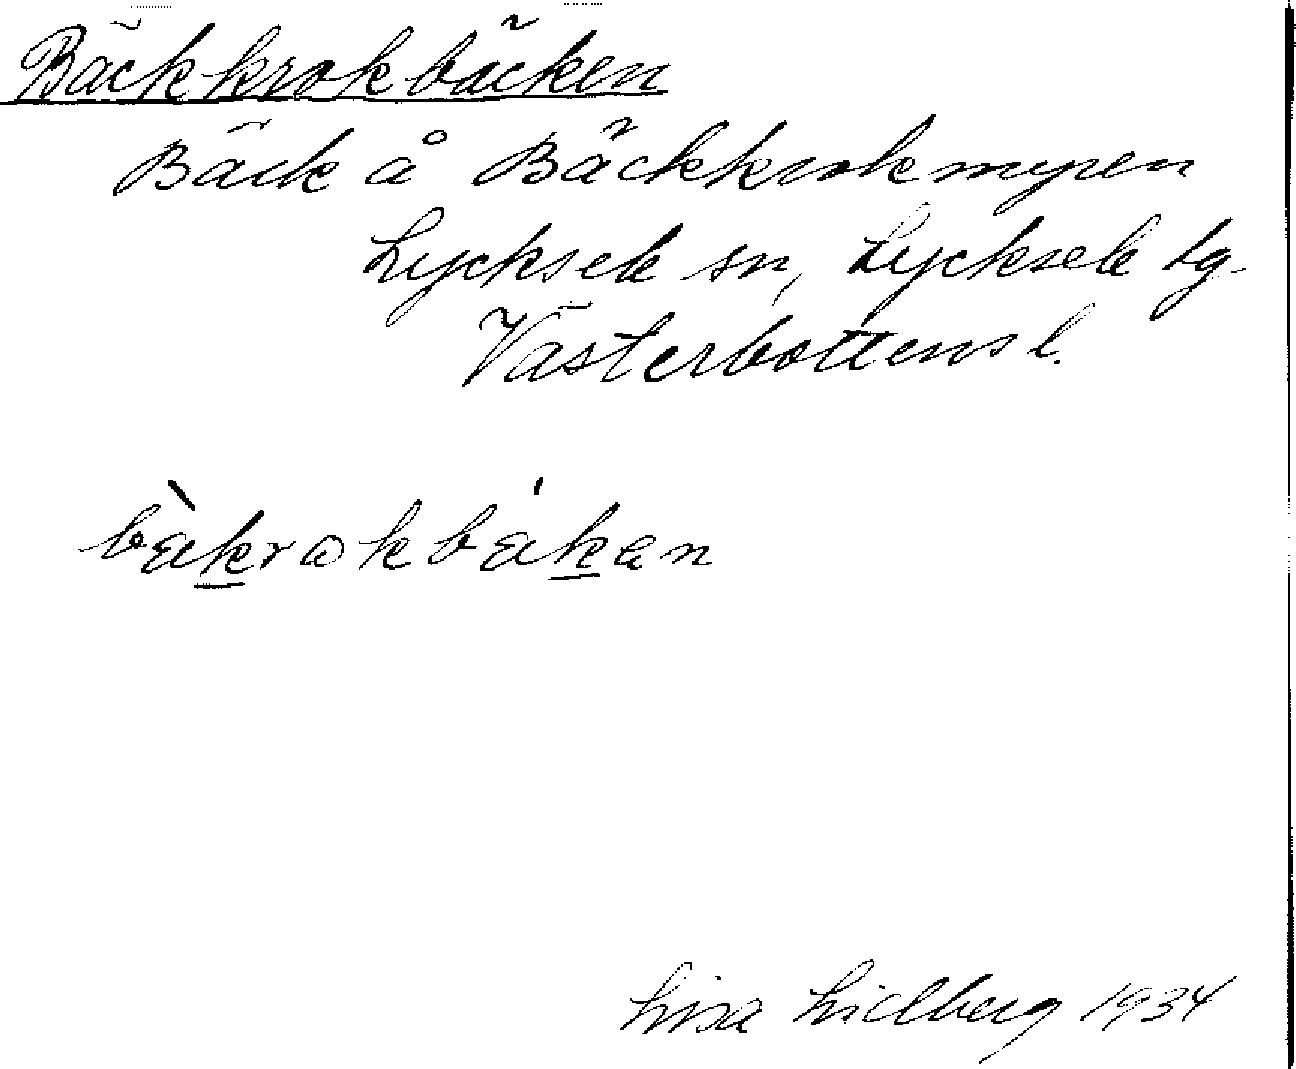 Bäckkrokbäcken
Bäck å Bäckkrokmyren
Lycksele sn, Lycksele tg.
Västerbottens l.
bὰk̲rokbά̍k̲an
Lisa Lidberg 1934